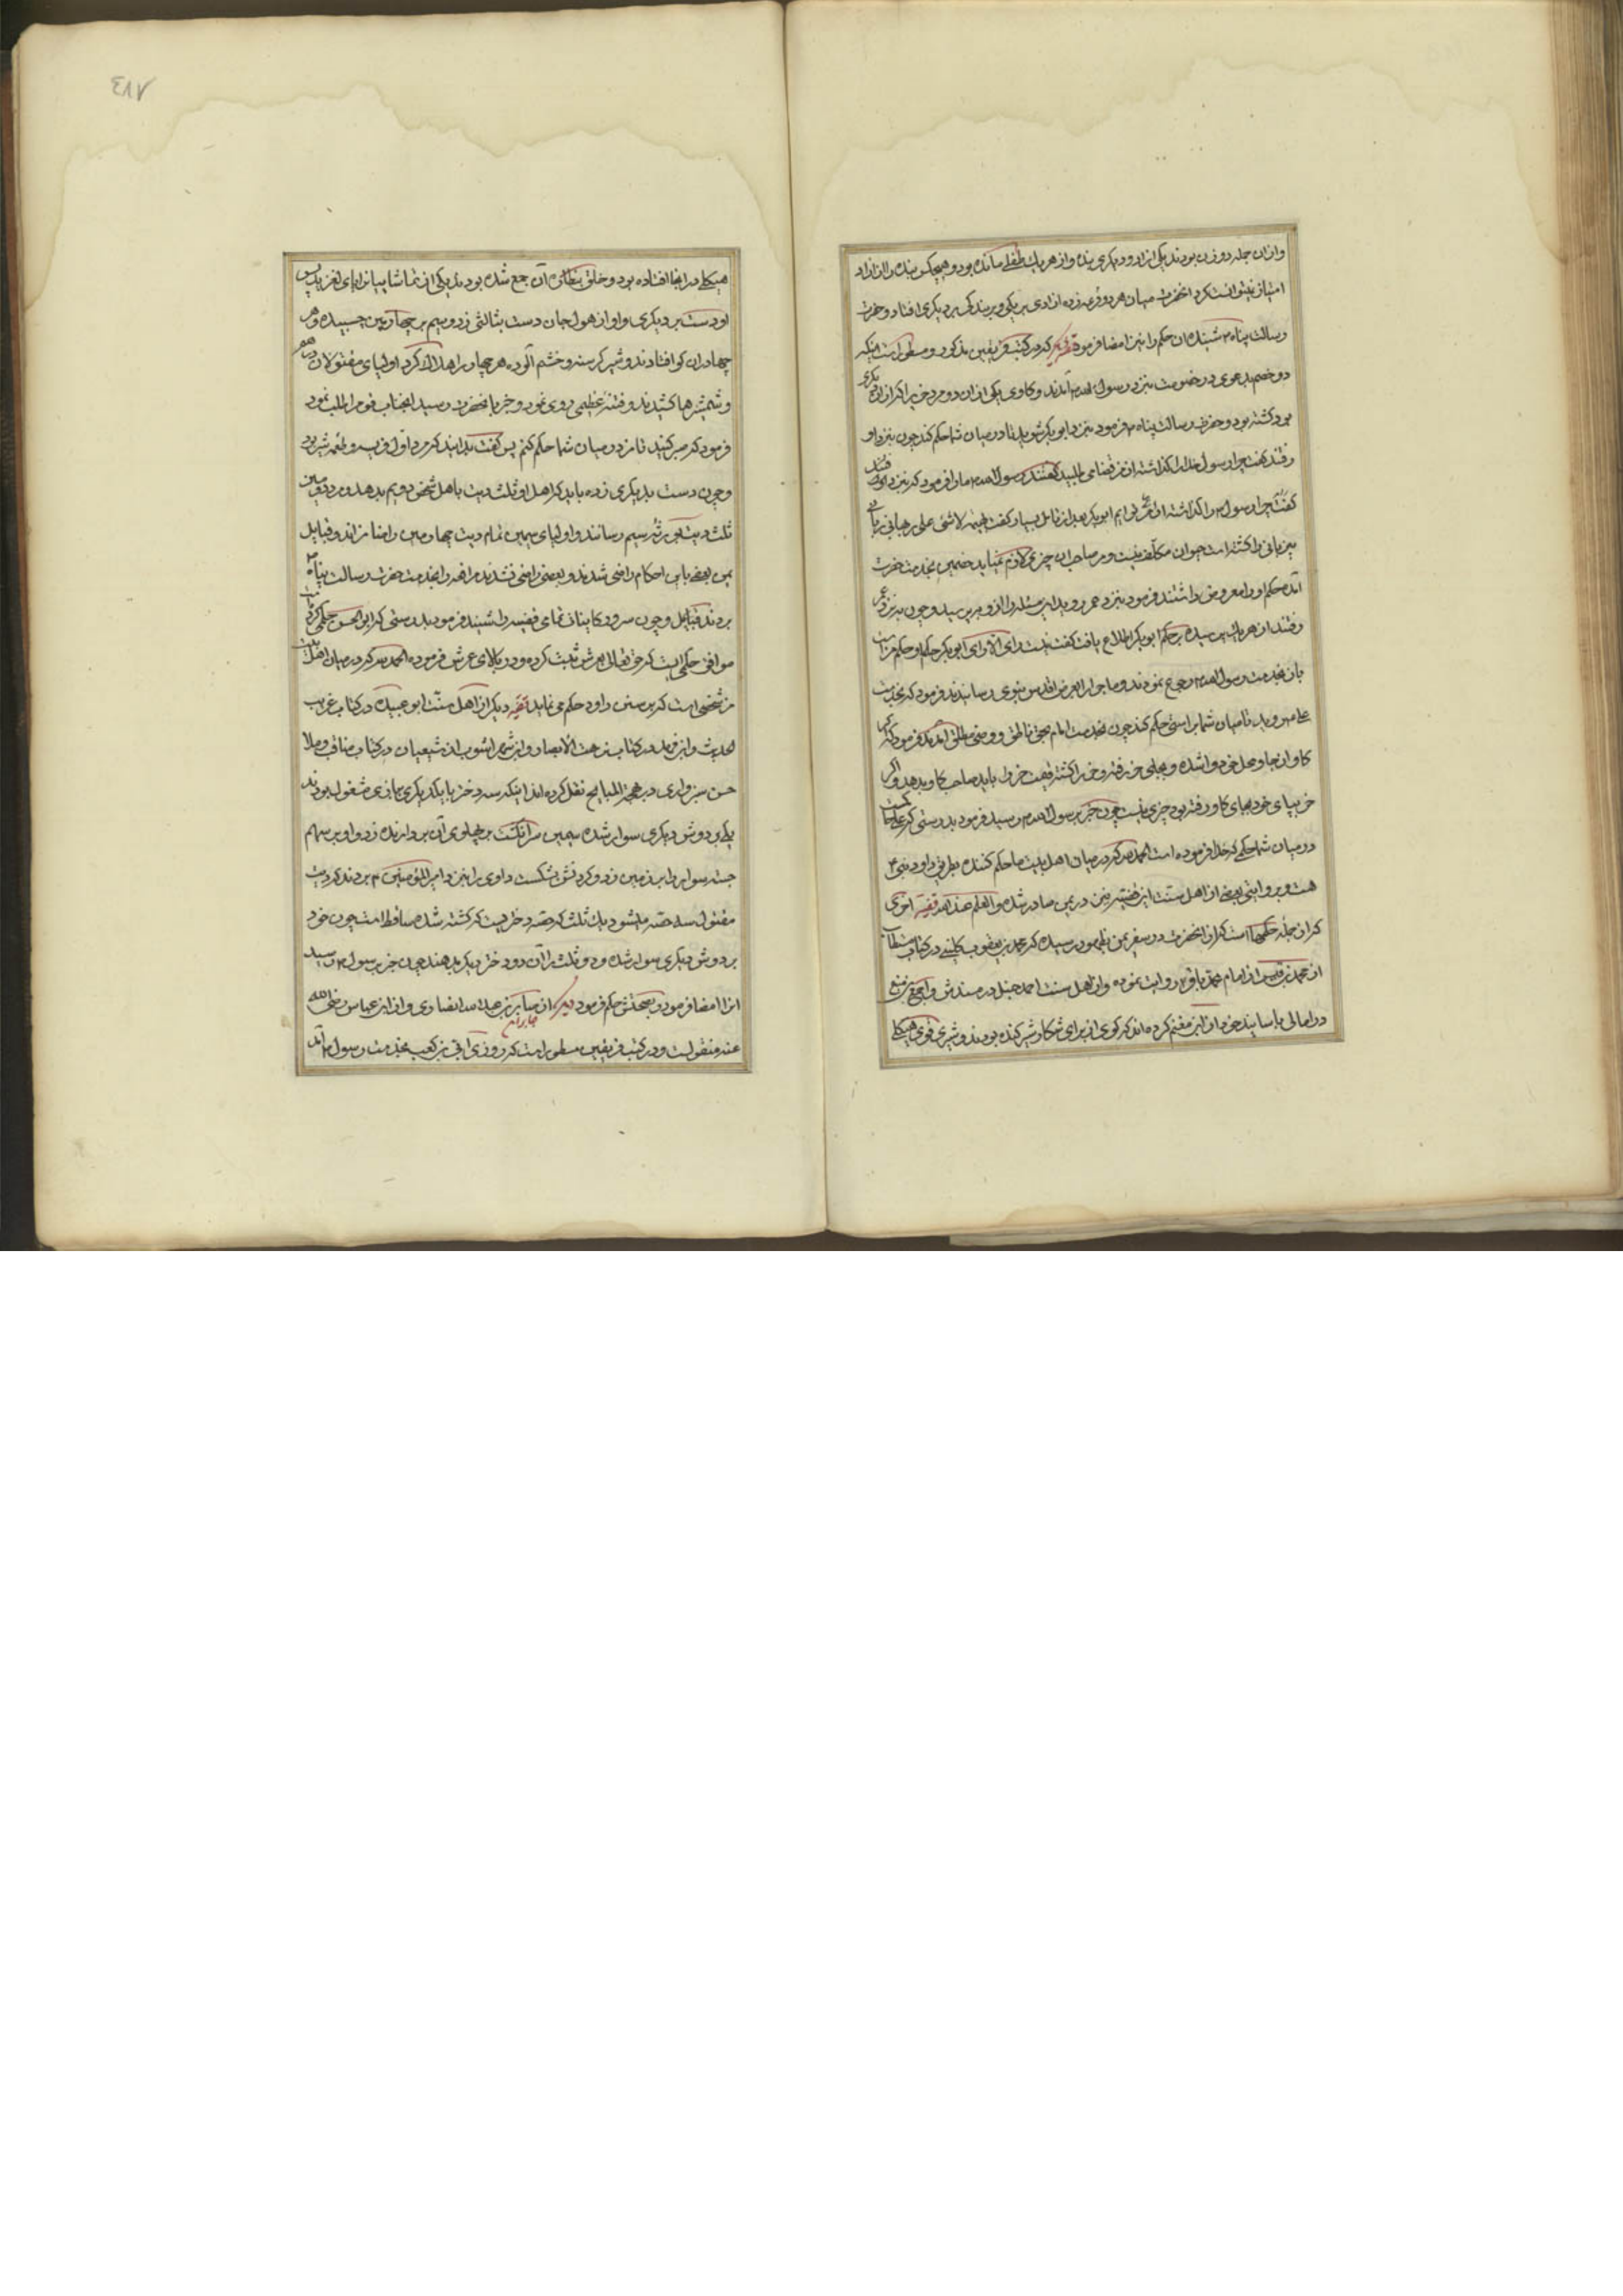 وازان جمله دو زن بودند یکی ازاد و دیکری بنده و از هر یك طفلی مانده بود و هیچکس بنده را از ازاد
امتیاز نمیتوانست کرد انحضرت میان هر دو قرعه زده ازادی بر یکی و بر بندکی بر دیکری افتاد و حضرت
رسالت پناه م شنیده ان حکم را نیز امضا فرمود قضیه که در کتب فریقین مذکور و مسطور است اینکه
دو خصم بدعوی در خصومت نزد رسول الله م آمدند و کاوی یکی از ان دو مرد خر را که از ان دیکری
بود کشته بود و حضرت رسالت پناه م فرمود نزد ابو بکر شوید تا در میان شما حکم کند چون نزد او
رفتند کفت چرا رسول خدا را کذاشته از من قضا می طلبید کفتند رسول الله م ما را فرمود که نزد تو
کفت چرا رسول م را کذاشته ابو بکر بعد از تامل بسیار کفت بهیمه لاشی علی ربها نی زبانی
نیز بانی را کشته است حیوان مکلف نیست و بر صاحب ان چیزی لازم نمیاید خصمین بخدمت حضرت
آمده حکم او را معروض داشتند فرمود نزد عمر روید این مسئله را از و بپرسید و چون نزد عمر
رفتند از هر یك پرسیده بر حکم ابو بکر اطلاع یافت کفت نیست رای الا رای ابو بکر حکم او حکم من است
باز بخدمت رسول الله م رجوع نمودند و ماجرا را بعرض اقدس نبوی رسانیدند فرمود که بخدمت
علی م روید تا میان شما براستی حکم کند چون بخدمت امام بحق ناطق و وصی مطلق آمدند فرمود که اکر
کاو از جا و محل خود وا شده و بجای خر رفته و خر را کشته قیمت خر را باید صاحب کاو بدهد و اکر
خر بپای خود بجای کاو رفته بود چیزی نیست چون خبر برسول الله م رسید فرمود بدرستی که علی
در میان شما حکمی که خدا فرموده است الحمد لله که در میان اهل بیت ما حکم کننده بطریق داود نبی م
هست و بروایتی بعضی از اهل سنت این قضیه نیز در یمن صادر شده و العلم عند الله قضیه اخری
که از جمله حکمها است که از انحضرت در سفر یمن بظهور رسیده که محمد بن یعقوب کلینی در کتاب
از محمد بن قیس از امام محمد باقر م روایت نموده و از اهل سنت احمد حنبل در مسندش و احمد بن منیع
در امالی باسانید خود از ابن معتمر کرده اند که کوی از برای شکار شیر کنده بودند و شیری قوی هیکلی
هیکلی در انجا افتاده بود و خلق بنظاره آن جمع شده بودند یکی از تماشاییانرا پای لغزید پس
او دست بر دیکری و او از هول جان دست بثالثی زد و سیم بر چهارمین چسبیده و هر
چهار در ان کو افتادند و شیر کرسنه و خشم آلوده هر چهار را هلاك کرد اولیای مقتولان در هم
و شمشیرها کشیدند و فتنهٔ عظیمی روی نمود و خبر بانحضرت رسید انجناب قوم را طلب نموده
فرمود که صبر کنید تا من در میان شما حکم کنم پس کفت بدانید که مرد اول فریسه و طعمه شیر بود
و چون دست بدیکری زده باید که اهل او ثلث دیت باهل شخص دویم بدهد و بر دویمین
ثلث دیت بورثه سیم رسانند و اولیای سیمین تمام دیت چهارمین را ضامن اند و قبایل
یمن بعضی باین احکام راضی شدند و بعضی راضی نشدند مرافعه را بخدمت حضرت رسالت پناه م
بردند قبایل و چون سرور کاینات تمامی قضیه را شنید فرمود بدرستی که ابو الحسن حکمی کرده
موافق حکمی است که حق تعالی در عرش ثبت کرده و در بالای عرش فرموده الحمد لله که در میان اهل بیت
من شخصی است که بر سنن داود حکم می نماید قضیه دیکر از اهل سنت ابو عبیده در کتاب غریب
الحدیث و ابن مهدی در کتاب نزهت الابصار و ابن شهر اشوب از شیعیان در کتاب مناقب و ملا
حسن سبزواری در بهجة المباهج نقل کرده اند اینکه سه دختر با یکدیکر ببازی مشغول بودند
یکی بر دوش دیکری سوار شده سیمین سر انکشت بر پهلوی آن بردارنده زد و او بر سهم
جسته سوار را بر زمین زد و کردنش بشکست داوری را نزد امیر المؤمنین م بردند که دیت
مقتول سه حصه میشود یك ثلث که حصه دختریست که کشته شده ساقط است چون خود
بر دوش دیکری سوار شده و دو ثلث را آن دو دختر دیکر بدهند چون خبر برسول م رسید
انرا امضا فرمود و بصحتش حکم فرمود دیکر از جابر بن عبد الله انصاری و از ابن عباس رضی الله
جابر بن
عنه منقولست و در کتب فریقین مسطور است که روزی ابی بن کعب بخدمت رسول م آمد